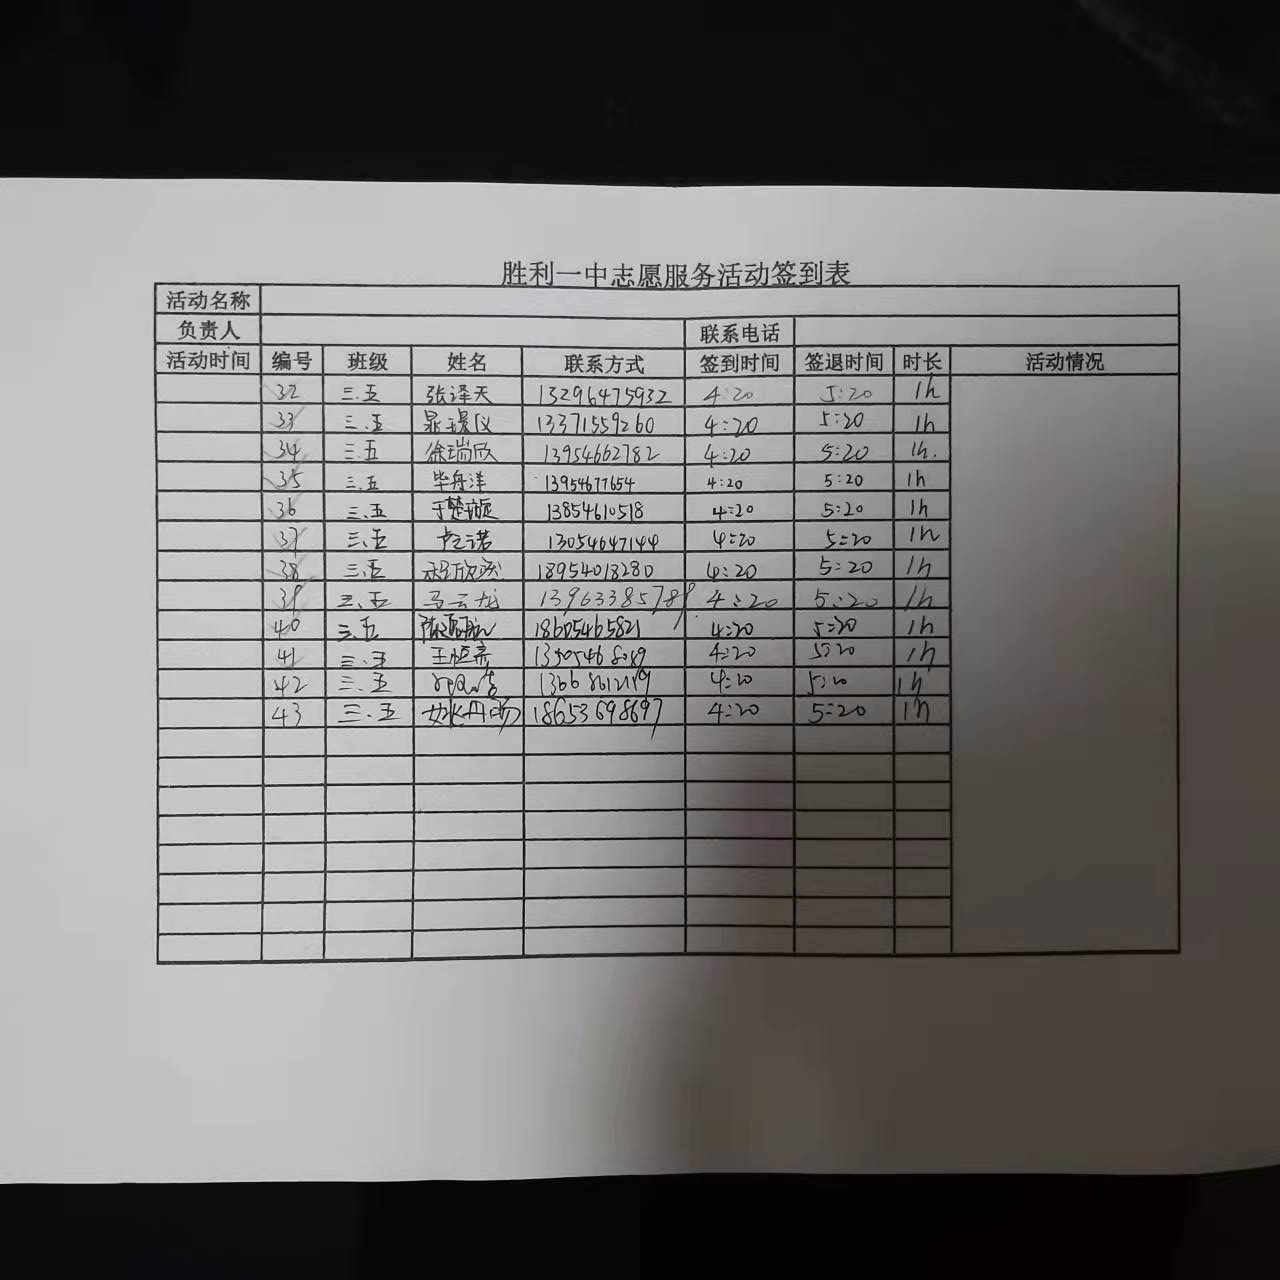 胜利一中志愿服务活动签到表
活动名称
负责人 联系电话
活动时间 编号 班级 姓名 联系方式 签到时间 签退时间 时长 活动情况
32 三.五 张泽天 13296475932 4:20 5:20 1h
33 三.五 13371559260 4:20 5:20 1h
34 三.五 徐瑞欣 13954662782 4:20 5:20 1h.
35 三.五 毕舟洋 13954677654 4:20 5:20 1h
36 三.五 于楚璇 13854610518 4:20 5:20 1h
37 三.五 卢之诺 13054647144 4:20 5:20 1h
38 三.五 18954018280 4:20 5:20 1h
39 三.五 马云龙 13963385789 4:20 5:20 1h
40 三.五 18605465821 4:20 5:20 1h
41 三.五 王恒齐 4:20 5:20 1h
42 三.五 4:20 5:20 1h
43 三.五 18653698697 4:20 5:20 1h